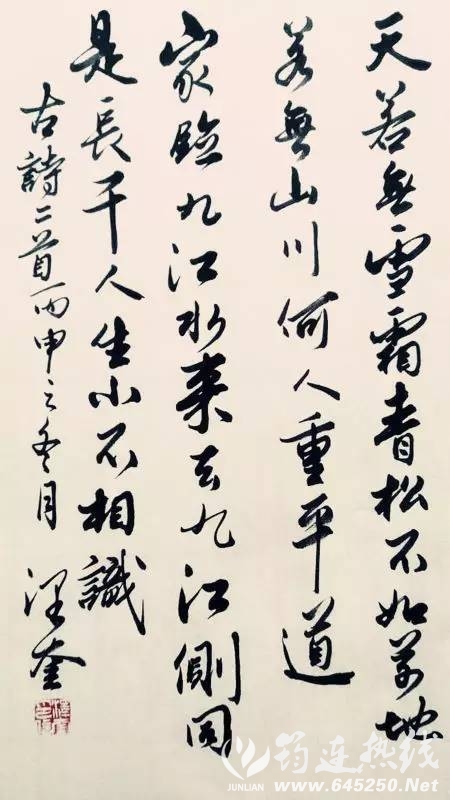 天若無雪霜青松不如草地
若無山川何人重平道
家臨九江水来去九江側同
是長干人生小不相識
古詩二首丙申之冬月
奎
筠连热线
JUNLIAN
www.645250.Net